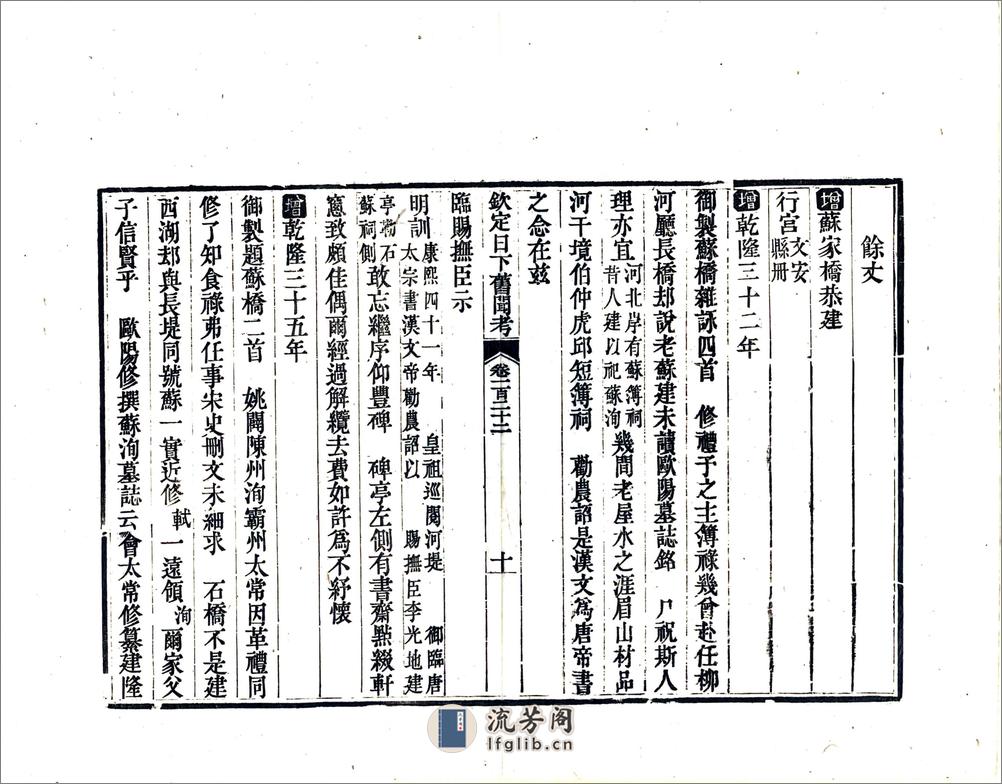 餘丈
增蘇家橋恭建
行宮文安縣冊
增乾隆三十二年
御製蘇橋雜詠四首　修禮予之主簿祿幾曾赴任柳
河廳長橋却說老蘇建未讀歐陽墓誌銘　尸祝斯人
理亦宜河北岸有蘇簿祠昔人建以祀蘇洵幾間老屋水之涯眉山材品
河干境伯仲虎邱短簿祠　勸農詔是漢文爲唐帝書
之念在兹
欽定日下舊聞考　卷一百二十二　十
臨賜撫臣示
明訓康熙四十一年　皇祖巡閱河堤　御臨唐太宗書漢文帝勸農詔以　賜撫臣李光地建
亭勒石蘇祠側敢忘繼序仰豐碑　碑亭左側有書齋㸃綴軒
窻致頗佳偶爾經過解纜去費如許爲不紓懷
增乾隆三十五年
御製題蘇橋二首　姚闢陳州洵霸州太常因革禮同
修了知食祿弗任事宋史刪文未細求　石橋不是建
西湖却與長堤同號蘇一實近修軾一遠領洵爾家父
子信賢乎　歐陽修撰蘇洵墓誌云會太常修纂建隆
流芳阁
lfglib.cn